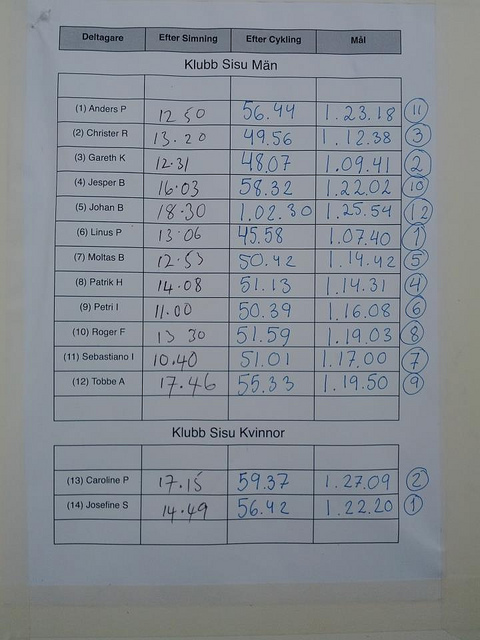 Deltagare Efter Simning Efter Cykling Mål
Klubb Sisu Män
(1) Anders P 12 50 56.44 1.23.18 11
(2) Christer R 13.20 49.56 1.12.38 3
(3) Gareth K 12.31 48.07 1.09.41 2
(4) Jesper B 16.03 58.32 1.22.02 10
(5) Johan B 18.30 1.02.30 1.25.54 12
(6) Linus P 13.06 45.58 1.07.40 1
(7) Moltas B 12.53 50.42 1.14.42 5
(8) Patrik H 14.08 51.13 1.14.31 4
(9) Petri I 11.00 50.39 1.16.08 6
(10) Roger F 13 30 51.59 1.19.03 8
(11) Sebastiano I 10.40 51.01 1.17.00 7
(12) Tobbe A 17.46 55.33 1.19.50 9
Klubb Sisu Kvinnor
(13) Caroline P 17.15 59.37 1.27.09 2
(14) Josefine S 14.49 56.42 1.22.20 1